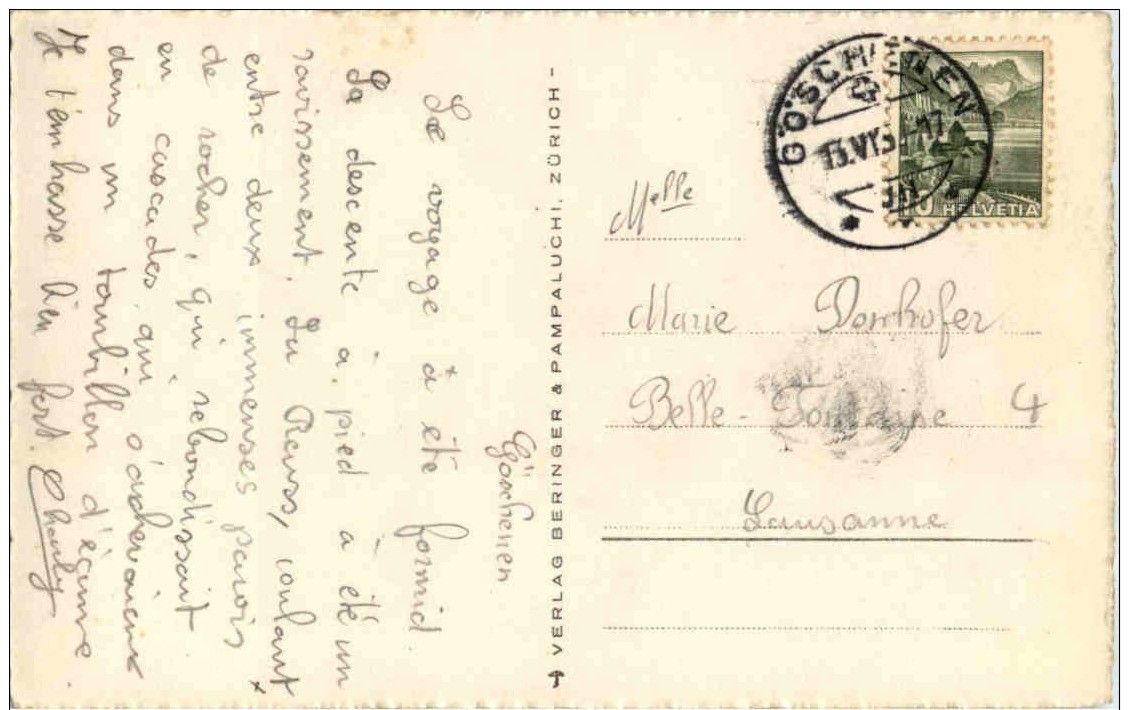 Göschenen
Le voyage a été formid.
La descente à pied a été un
ravissement. La Reuss, coulant
entre deux immenses parois
de rocher, qui rebondissait
en cascades qui s'achevaient
dans un tourbillon d'écume.
Je t'embrasse bien fort. Charly
VERLAG BERINGER & PAMPALUCHI, ZÜRICH -
GÖSCHENEN
13.VI.3 -17
HELVETIA
Melle
Marie Dorrhofer
Belle-Fontaine 4
Lausanne